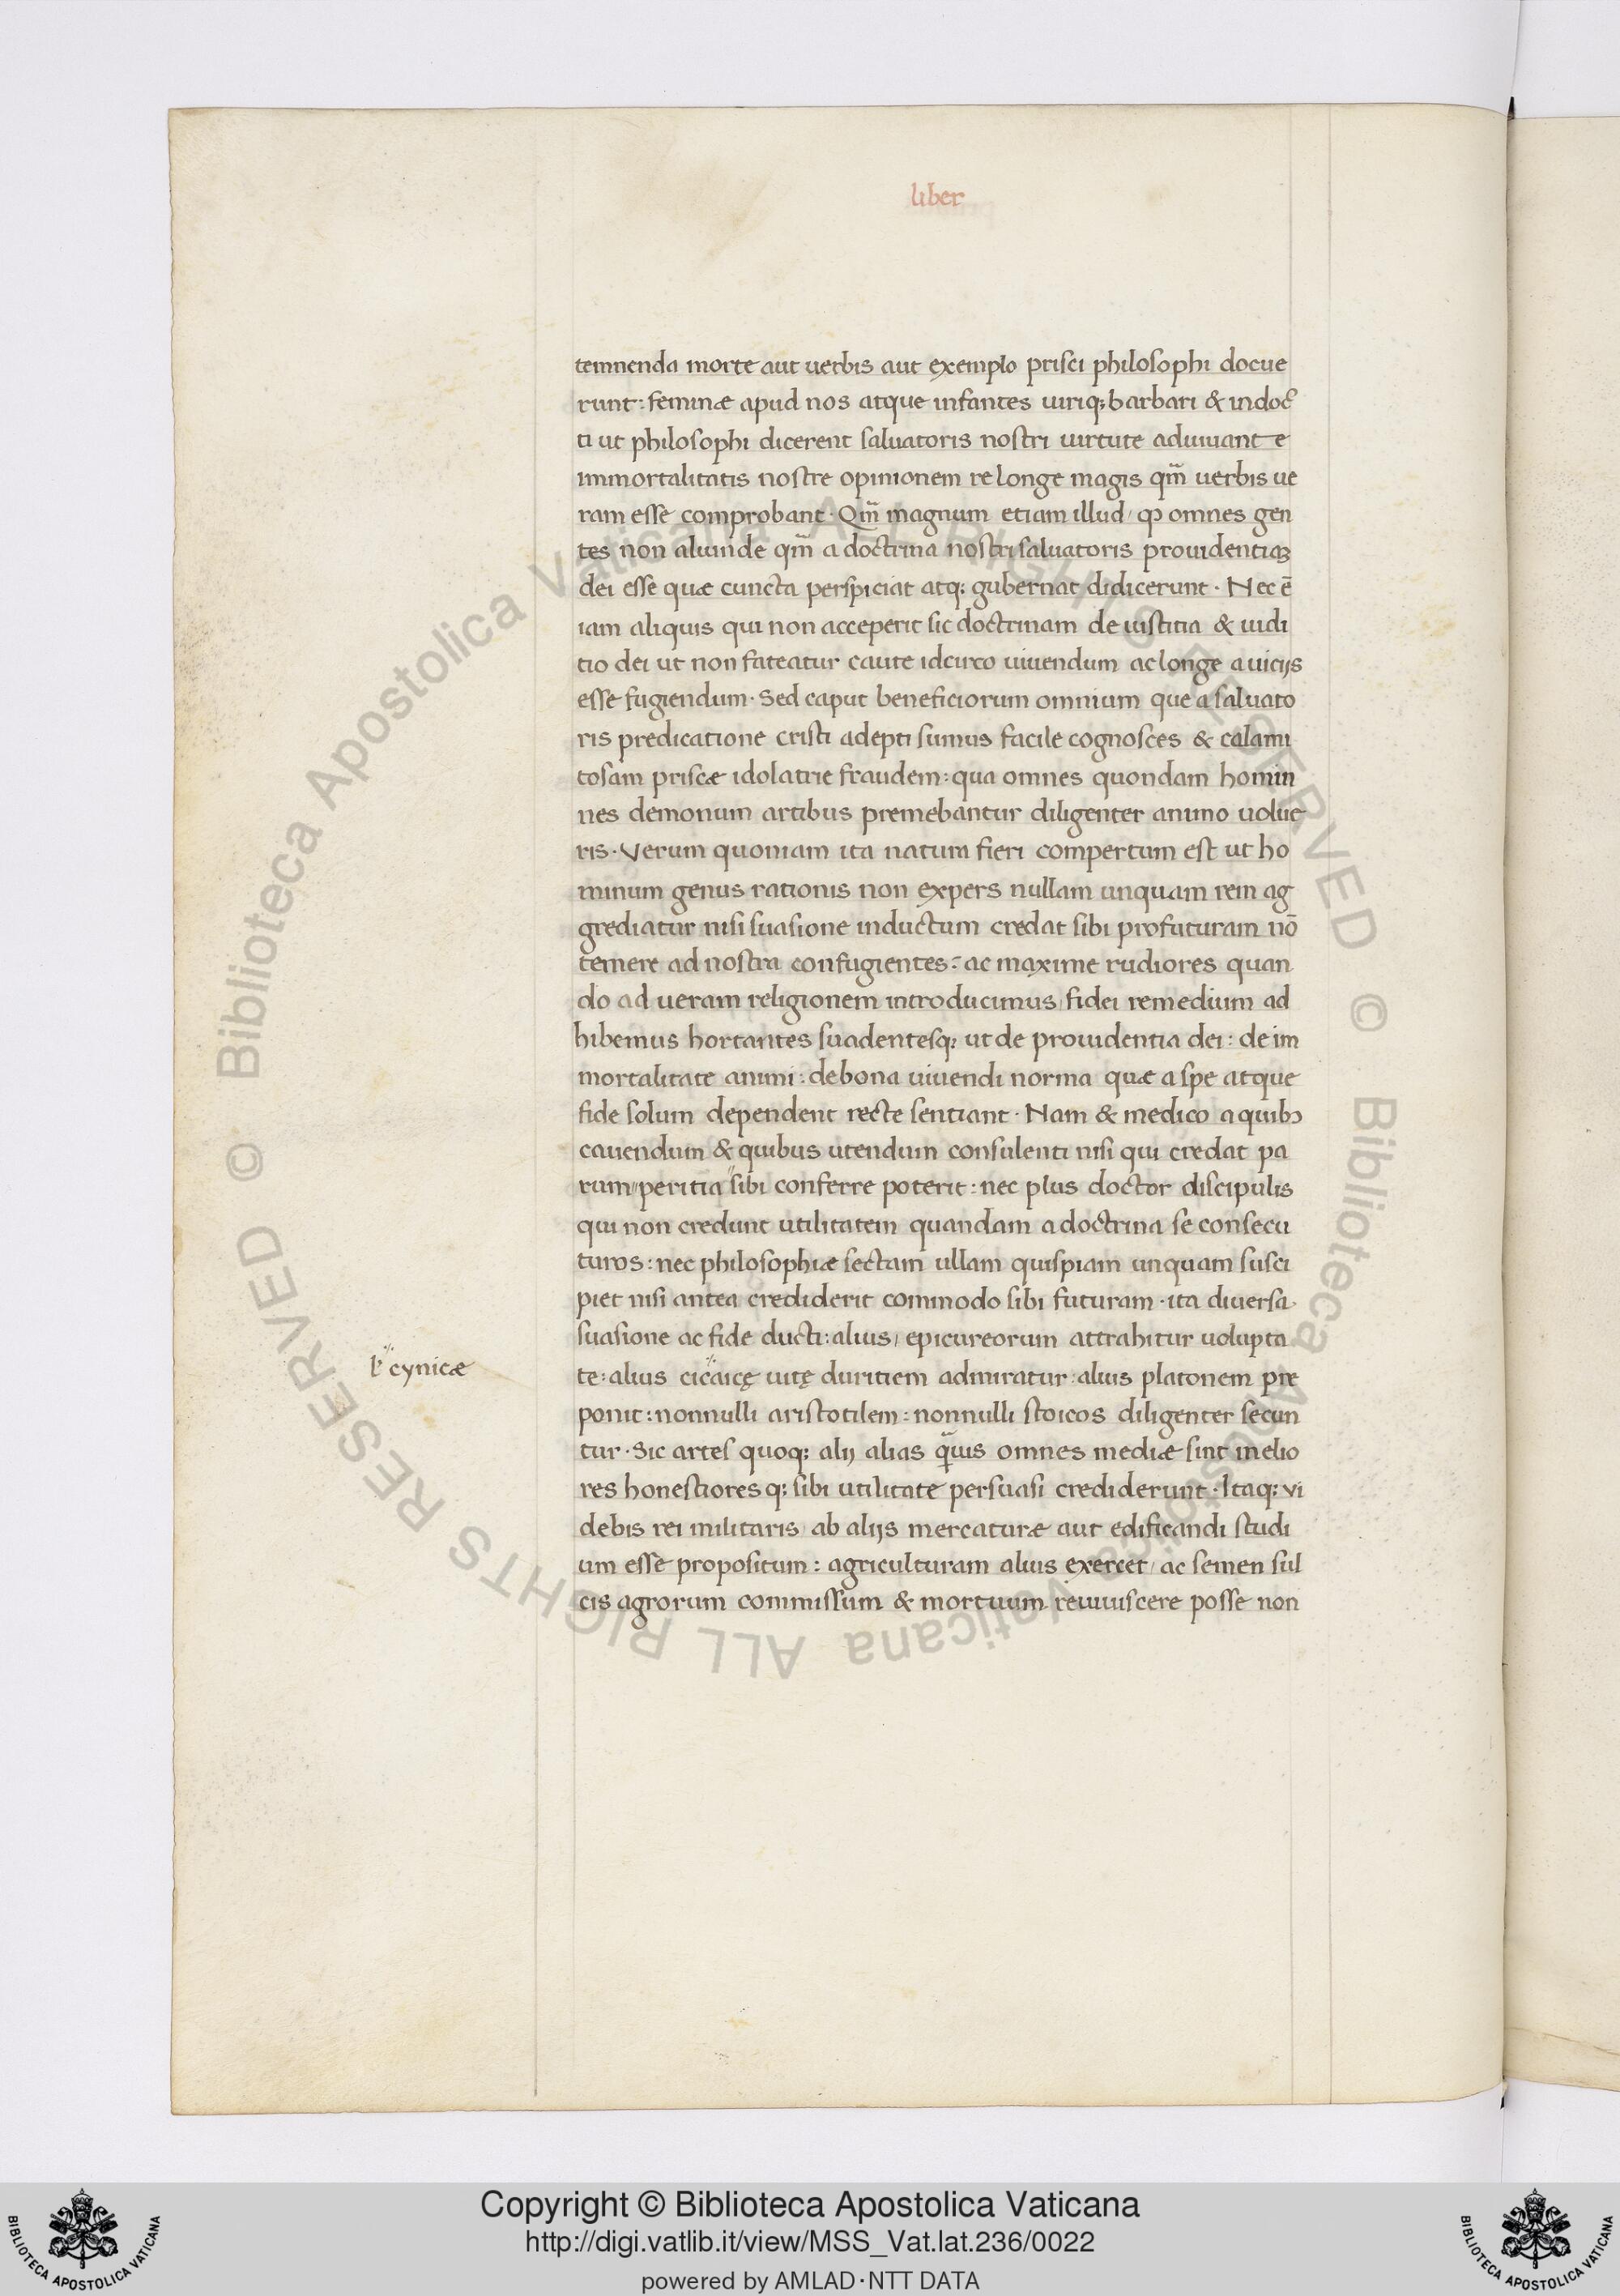 liber
temnenda morte aut uerbis aut exemplo prisci philosophi docue
runt: feminæ apud nos atque infantes uiriq; barbari & indoc̃
ti ut philosophi dicerent saluatoris nostri uirtute adiuuante
immortalitatis nostre opinionem re longe magis qm̃ uerbis ue
ram esse comprobant· Qm̃ magnum etiam illud/ ꝙ omnes gen
tes non aliunde qm̃ a doctrina nostri saluatoris prouidentiaꝫ
dei esse quæ cuncta perspiciat atq; gubernat didicerunt· Nec ē
iam aliquis qui non acceperit sic doctrinam de iustitia & iudi
tio dei ut non fateatur caute idcirco uiuendum ac longe a uicijs
esse fugiendum· Sed caput beneficiorum omnium que a saluato
ris predicatione cristi adepti sumus facile cognosces & calami
tosam priscæ idolatrie fraudem: qua omnes quondam homin
nes demonum artibus premebantur diligenter animo uolue
ris· Verum quoniam ita natura fieri compertum est ut ho
minum genus rationis non expers nullam unquam rem ag
grediatur nisi suasione inductum credat sibi profuturam nō
temere ad nostra confugientes: ac maxime rudiores quan
do ad ueram religionem introducimus/ fidei remedium ad
hibemus hortantes suadentesq; ut de prouidentia dei: de im
mortalitate animi: de bona uiuendi norma quæ a spe atque
fide solum dependent recte sentiant· Nam & medico a quibꝯ
cauendum & quibus utendum consulenti nisi qui credat pa
rum peritia sibi conferre poterit: nec plus doctor discipulis
qui non credunt utilitatem quandam a doctrina se consecu
turos: nec philosophiæ sectam ullam quispiam unquam susci
piet nisi antea crediderit commodo sibi futuram· ita diuersa
suasione ac fide ducti: alius/ epicureorum attrahitur uolupta
l̵ cynicæ
te: alius cicaicę uitę duritiem admiratur: alius platonem pre
ponit: nonnulli aristotilem: nonnulli stoicos diligenter secun
tur· Sic artes quoq; alij alias q̃uis omnes mediæ sint melio
res honestiores q; sibi utilitate persuasi crediderunt· Itaq; vi
debis rei militaris/ ab alijs mercaturæ aut edificandi studi
um esse propositum: agriculturam alius exercet/ ac semen sul
cis agrorum commissum & mortuum reuiuiscere posse non
Copyright © Biblioteca Apostolica Vaticana
http://digi.vatlib.it/view/MSS_Vat.lat.236/0022
powered by AMLAD·NTT DATA
BIBLIOTECA APOSTOLICA VATICANA
BIBLIOTECA APOSTOLICA VATICANA
© Biblioteca Apostolica Vaticana ALL RIGHTS RESERVED © Biblioteca Apostolica Vaticana ALL RIGHTS RESERVED